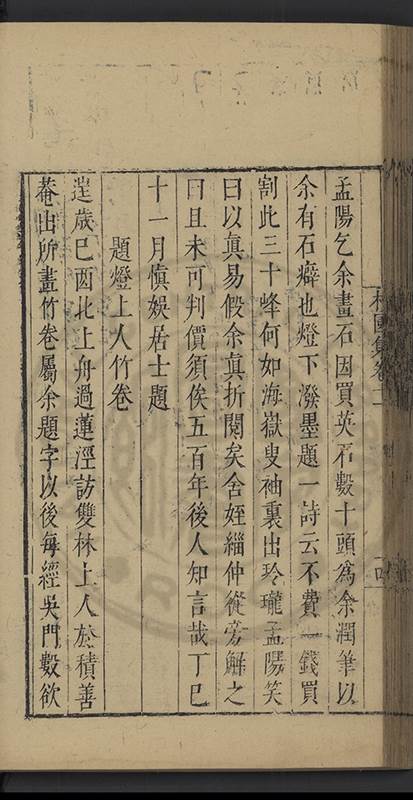 孟陽乞余畫石因買英石數十頭為余潤筆以
余有石癖也燈下潑墨題一詩云不費一錢買
割此三十峰何如海嶽叟袖裏出玲瓏孟陽笑
曰以眞易假余眞折閱矣舍姪緇仲從旁解之
曰且未可判價須俟五百年後人知言哉丁巳
十一月愼娛居士題
題燈上人竹卷
逆歲己酉北上舟過蓮涇訪雙林上人於積善
菴出所畫竹卷屬余題字以後每經吳門數欲